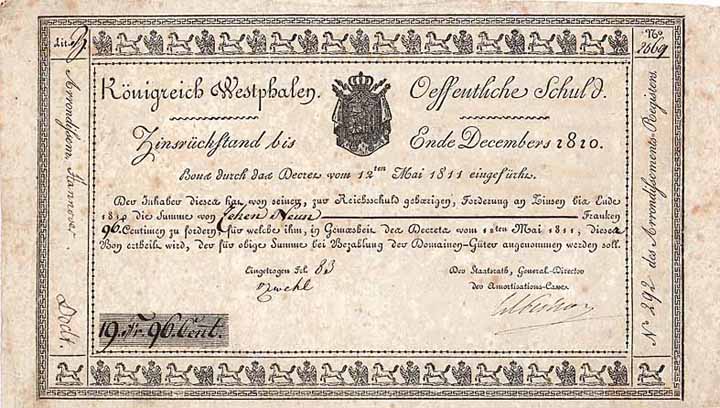 Lit. B
No. 2669
Königreich Westphalen. Oeffentliche Schuld.
Zinsrückstand bis Ende Decembers 1810.
Bons durch das Decret vom 12ten Mai 1811 eingeführt.
Der Inhaber dieses hat von seiner, zur Reichsschuld gehörigen, Forderung an Zinsen bis Ende
1810 die Summe von Zehen Neun Franken
96 Centimen zu fordern, für welche ihm, in Gemäsheit des Decrets vom 12ten Mai 1811, dieser
Bon ertheilt wird, der für obige Summe bei Bezahlung der Domainen-Güter angenommen werden soll.
Eingetragen Fol. 83
Der Staatsrath, General-Director
der Amortisations-Casse.
19 Fr. 96 Cent.
Arrondissem. Hannover
Dpdt.
No 292 des Arrondissements-Registers.